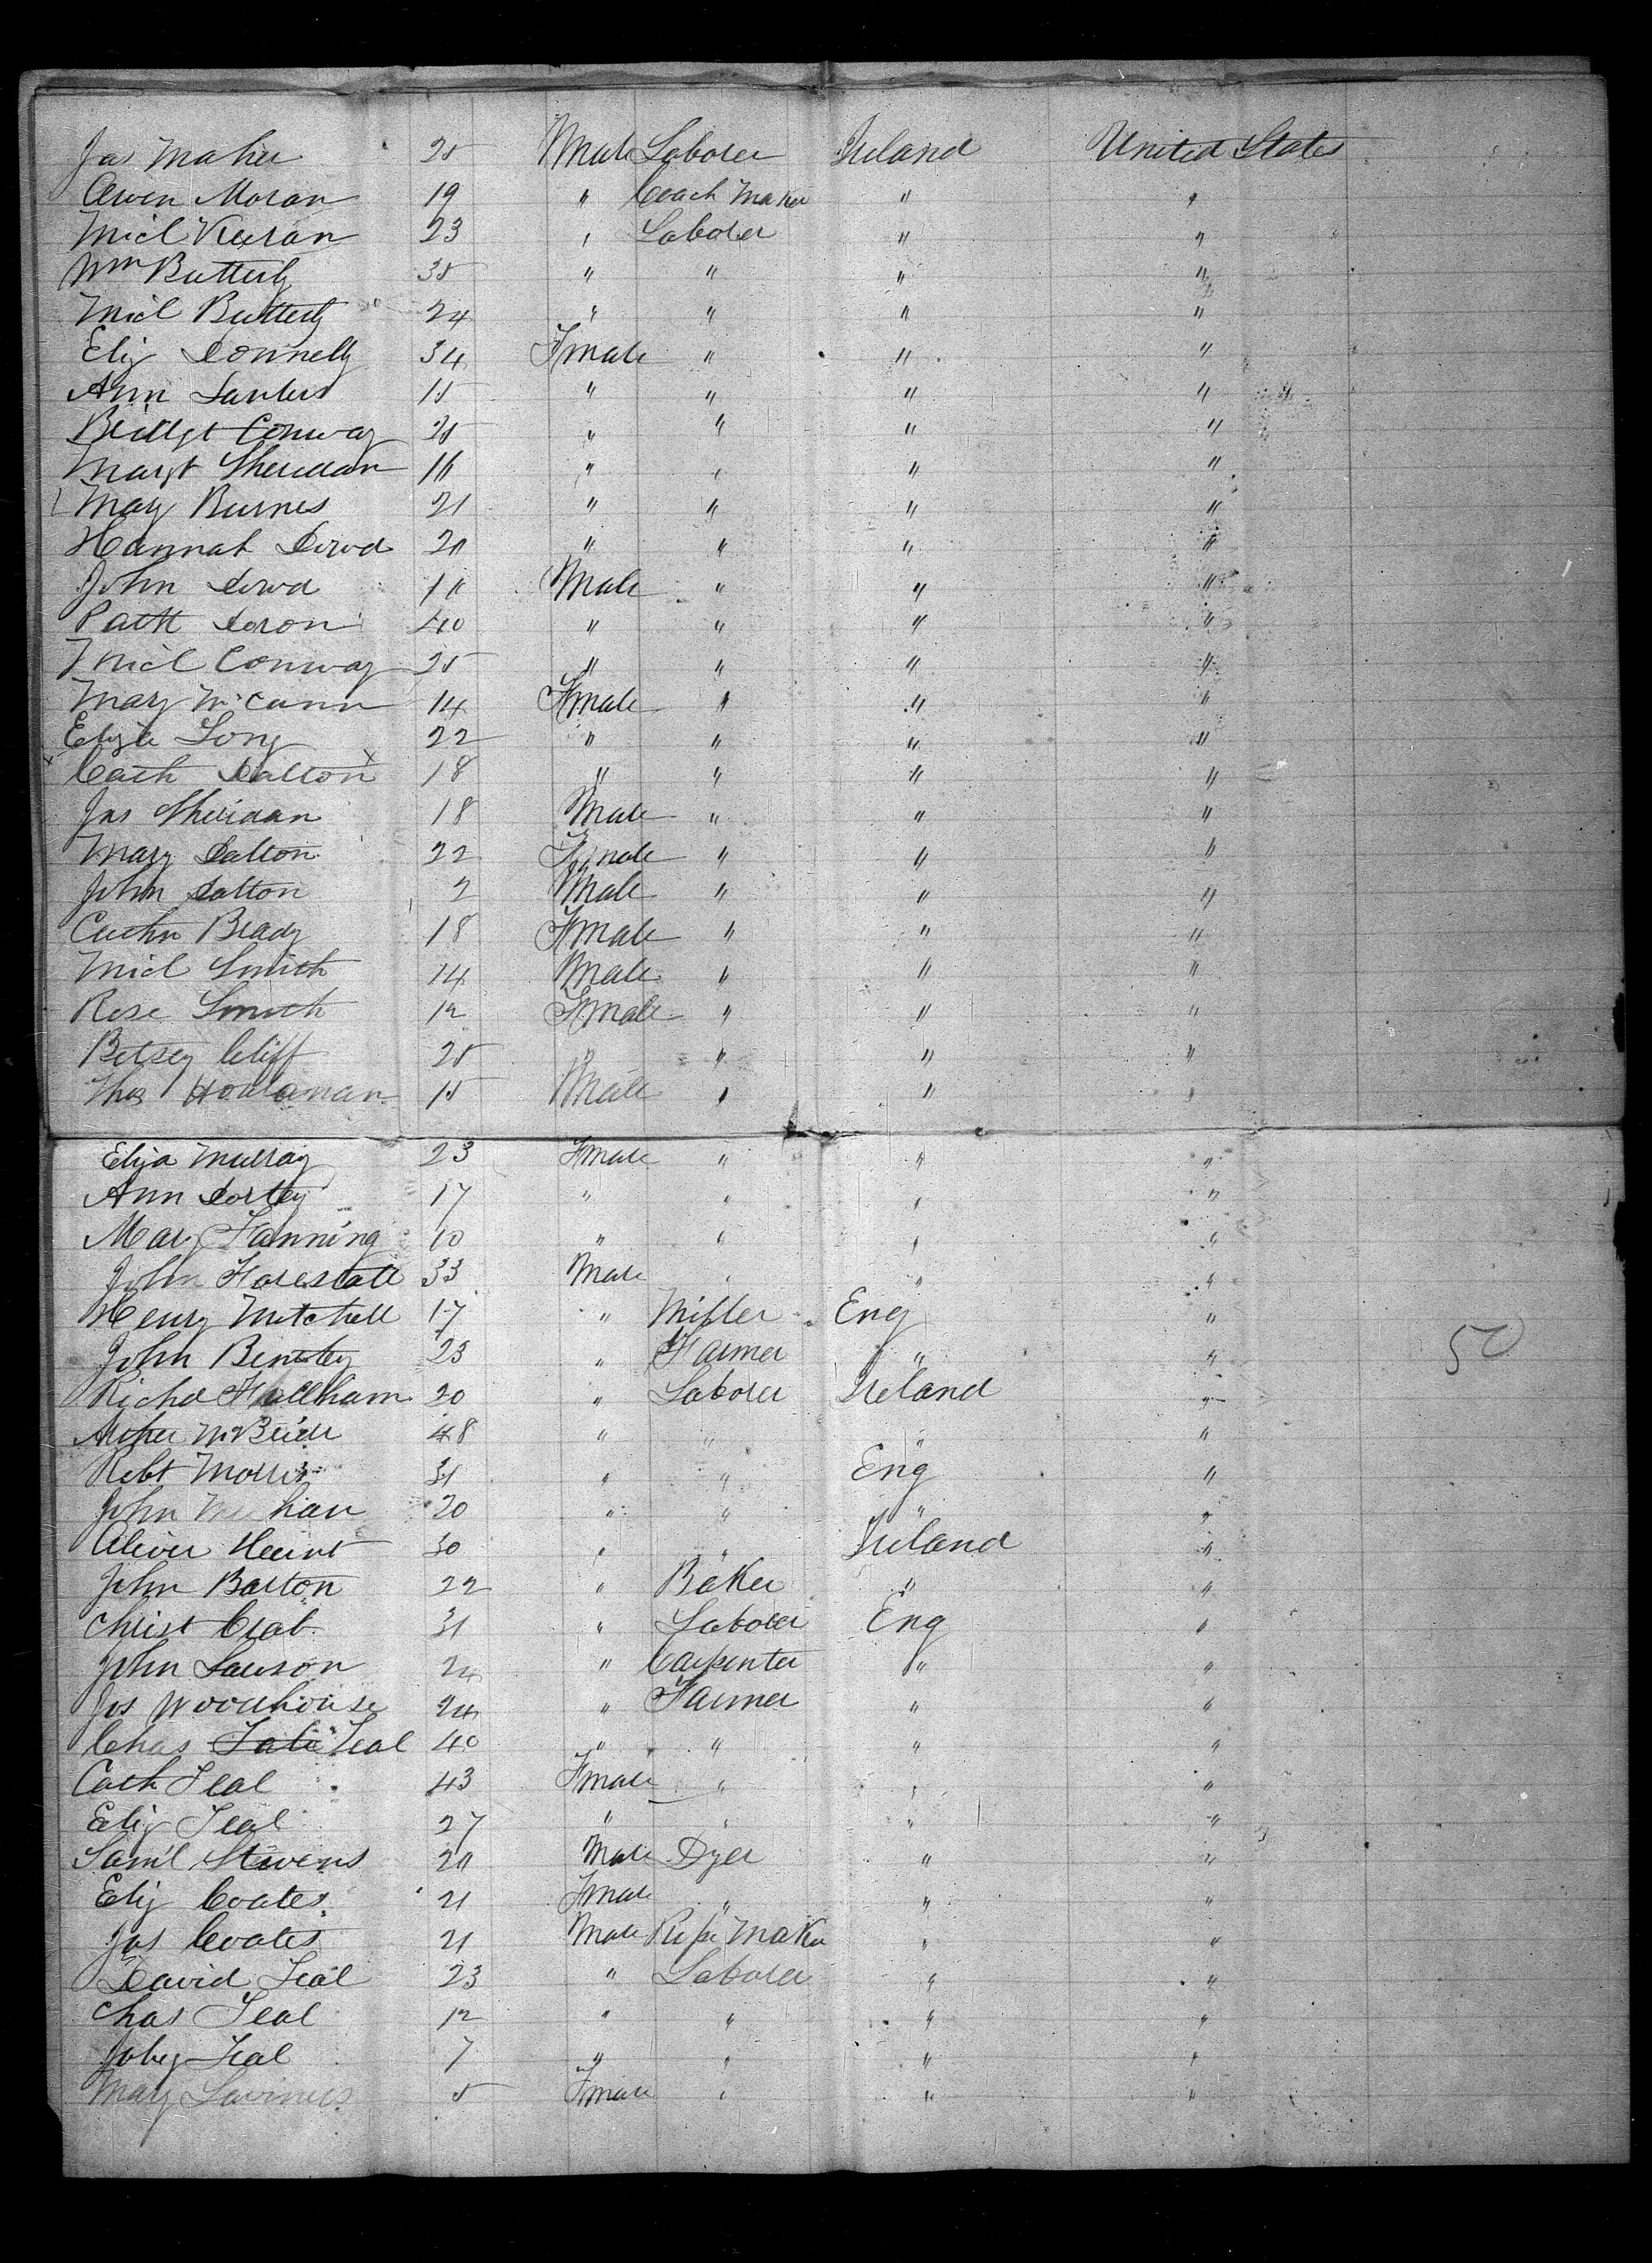 Jas Maher 25 Male Laborer Ireland United States
Owen Moran 19 " Coach Maker " "
Micl Kieran 23 " Laborer " "
Wm Butterly 35 " " " "
Micl Butterly 24 " " " "
Eliz Donnelly 34 Fmale " " "
Ann 15 " " " "
Bridgt Conway 25 " " " "
Margt Sheridan 16 " " " "
Mary Burnes 21 " " " "
Hannah Dowd 20 " " " "
John Dowd 10 Male " " "
Patk Doron 40 " " " "
Micl Conway 25 " " " "
Mary McCann 14 Fmale " " "
Eliza Long 22 " " " "
x Cath Dalton x 18 " " " "
Jas Sheridan 18 Male " " "
Mary Dalton 22 Fmale " " "
John Dalton 2 Male " " "
Cathn Brady 18 Fmale " " "
Micl Smith 14 Male " " "
Rose Smith 12 Fmale " " "
Betsey Cliff 25 " " " "
Thos 15 Male " " "
Eliza Murray 23 Fmale " " "
Ann Dortey 17 " " " "
Mary Fanning 10 " " " "
John Forestall 33 Male " " "
Henry Mitchell 17 " Miller Eng "
John Bentley 23 " Farmer " "
Richd Fullham 20 " Laborer Ireland "
Arthur McBride 48 " " " "
Robt Morris 31 " " Eng "
John Meehan 20 " " " "
Oliver 30 " " Ireland "
John Barton 22 " Baker " "
Christ Crab 31 " Laborer Eng "
John Lawson 24 " Carpenter " "
Jos Woodhouse 24 " Farmer " "
Chas Teal 40 " " " "
Cath Teal 43 Fmale " " "
Eliz Teal 27 " " " "
Saml Stevens 20 Male Dyer " "
Eliz Coates 21 Fmale " " "
Jas Coates 21 Male Rope Maker " "
David Teal 23 " Laborer " "
Chas Teal 12 " " " "
Teal 7 " " " "
Mary 5 Fmale " " "
50